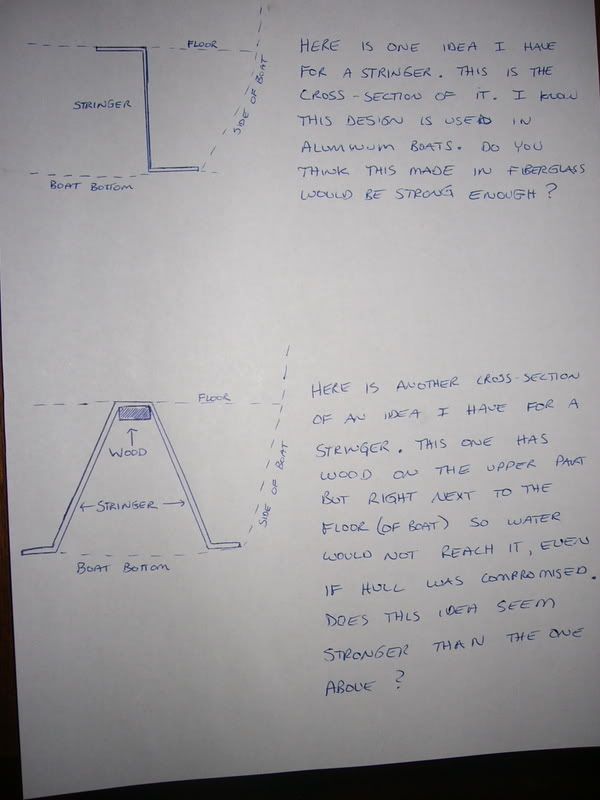 FLOOR
STRINGER
SIDE OF BOAT
BOAT BOTTOM
HERE IS ONE IDEA I HAVE
FOR A STRINGER. THIS IS THE
CROSS-SECTION OF IT. I KNOW
THIS DESIGN IS USED IN
ALUMINUM BOATS. DO YOU
THINK THIS MADE IN FIBERGLASS
WOULD BE STRONG ENOUGH?
FLOOR
WOOD
STRINGER
SIDE OF BOAT
BOAT BOTTOM
HERE IS ANOTHER CROSS-SECTION
OF AN IDEA I HAVE FOR A
STRINGER. THIS ONE HAS
WOOD ON THE UPPER PART
BUT RIGHT NEXT TO THE
FLOOR (OF BOAT) SO WATER
WOULD NOT REACH IT, EVEN
IF HULL WAS COMPROMISED.
DOES THIS IDEA SEEM
STRONGER THAN THE ONE
ABOVE?